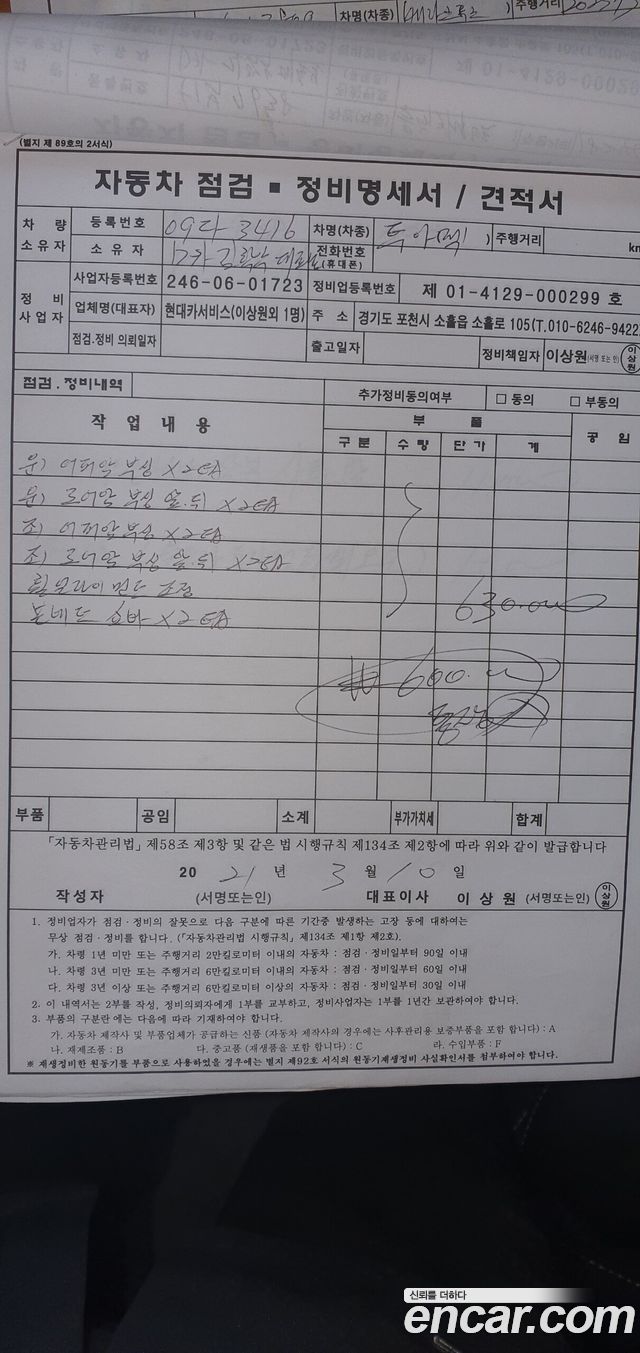 차명(차종)
주행거리
(별지 제 89호의 2서식)
자동차 점검 ▪ 정비명세서 / 견적서
차 량 소유자 등록번호 09다 3416 차명(차종) 투아렉 ) 주행거리 km
소 유 자 전화번호 (휴대폰)
정 비 사업자 사업자등록번호 246-06-01723 정비업등록번호 제 01-4129-000299 호
업체명(대표자) 현대카서비스(이상원외 1명) 주 소 경기도 포천시 소흘읍 소흘로 105(T.010-6246-9422)
점검.정비 의뢰일자 출고일자 정비책임자 이상원(서명 또는 인) 이상원
점검 . 정비내역 추가정비동의여부 □ 동의 □ 부동의
작 업 내 용 부 품 공 임
구 분 수 량 단 가 계
운) 어퍼암 부싱 X2EA
운) 로어암 부싱 앞.뒤 X2EA
조) 어퍼암 부싱 X2EA
조) 로어암 부싱 앞.뒤 X2EA
휠 얼라이먼트 조정
본네트 쇼바 X2EA 630.000
₩ 600.000
부품 공임 소계 부가가치세 합계
「자동차관리법」 제58조 제3항 및 같은 법 시행규칙 제134조 제2항에 따라 위와 같이 발급합니다
20 21 년 3 월 10 일
작성자 (서명또는인) 대표이사 이 상 원 (서명또는인) 이상원
1. 정비업자가 점검 · 정비의 잘못으로 다음 구분에 따른 기간중 발생하는 고장 등에 대하여는
무상 점검 · 정비를 합니다. (「자동차관리법 시행규칙」 제134조 제1항 제2호).
가. 차령 1년 미만 또는 주행거리 2만킬로미터 이내의 자동차 : 점검 · 정비일부터 90일 이내
나. 차령 3년 미만 또는 주행거리 6만킬로미터 이내의 자동차 : 점검 · 정비일부터 60일 이내
다. 차령 3년 이상 또는 주행거리 6만킬로미터 이상의 자동차 : 점검 · 정비일부터 30일 이내
2. 이 내역서는 2부를 작성, 정비의뢰자에게 1부를 교부하고, 정비사업자는 1부를 1년간 보관하여야 합니다.
3. 부품의 구분란 에는 다음에 따라 기재하여야 합니다.
가. 자동차 제작사 및 부품업체가 공급하는 신품 (자동차 제작사의 경우에는 사후관리용 보증부품을 포함 합니다) : A
나. 재제조품 : B 다. 중고품 (재생품을 포함 합니다) : C 라. 수입부품 : F
※ 재생정비한 원동기를 부품으로 사용하였을 경우에는 별지 제92호 서식의 원동기재생정비 사실확인서를 첨부하여야 합니다.
신뢰를 더하다
encar.com